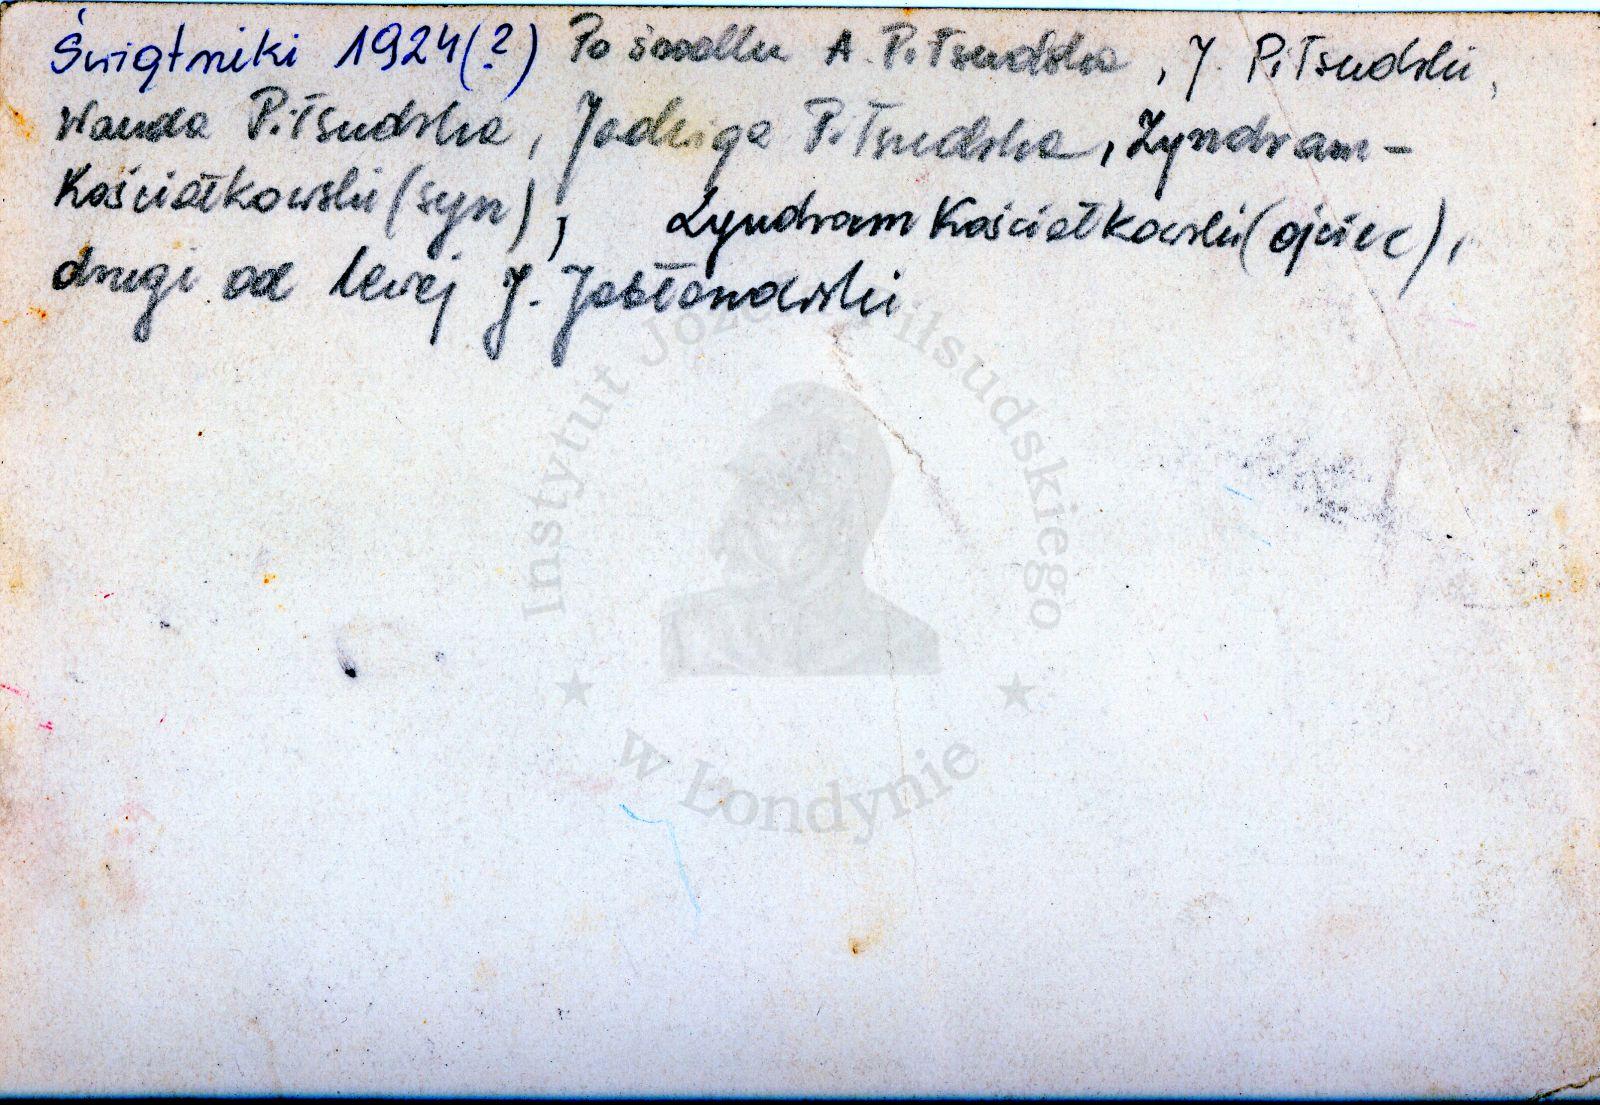 Świątniki 1924(?) Po środku A. Piłsudska, J. Piłsudski,
Wanda Piłsudska, Jadwiga Piłsudska, Zyndram-
Kościałkowski (syn), Zyndram Kościałkowski (ojciec),
drugi od lewej J. Jabłonowski
Instytut Józefa Piłsudskiego
w Londynie